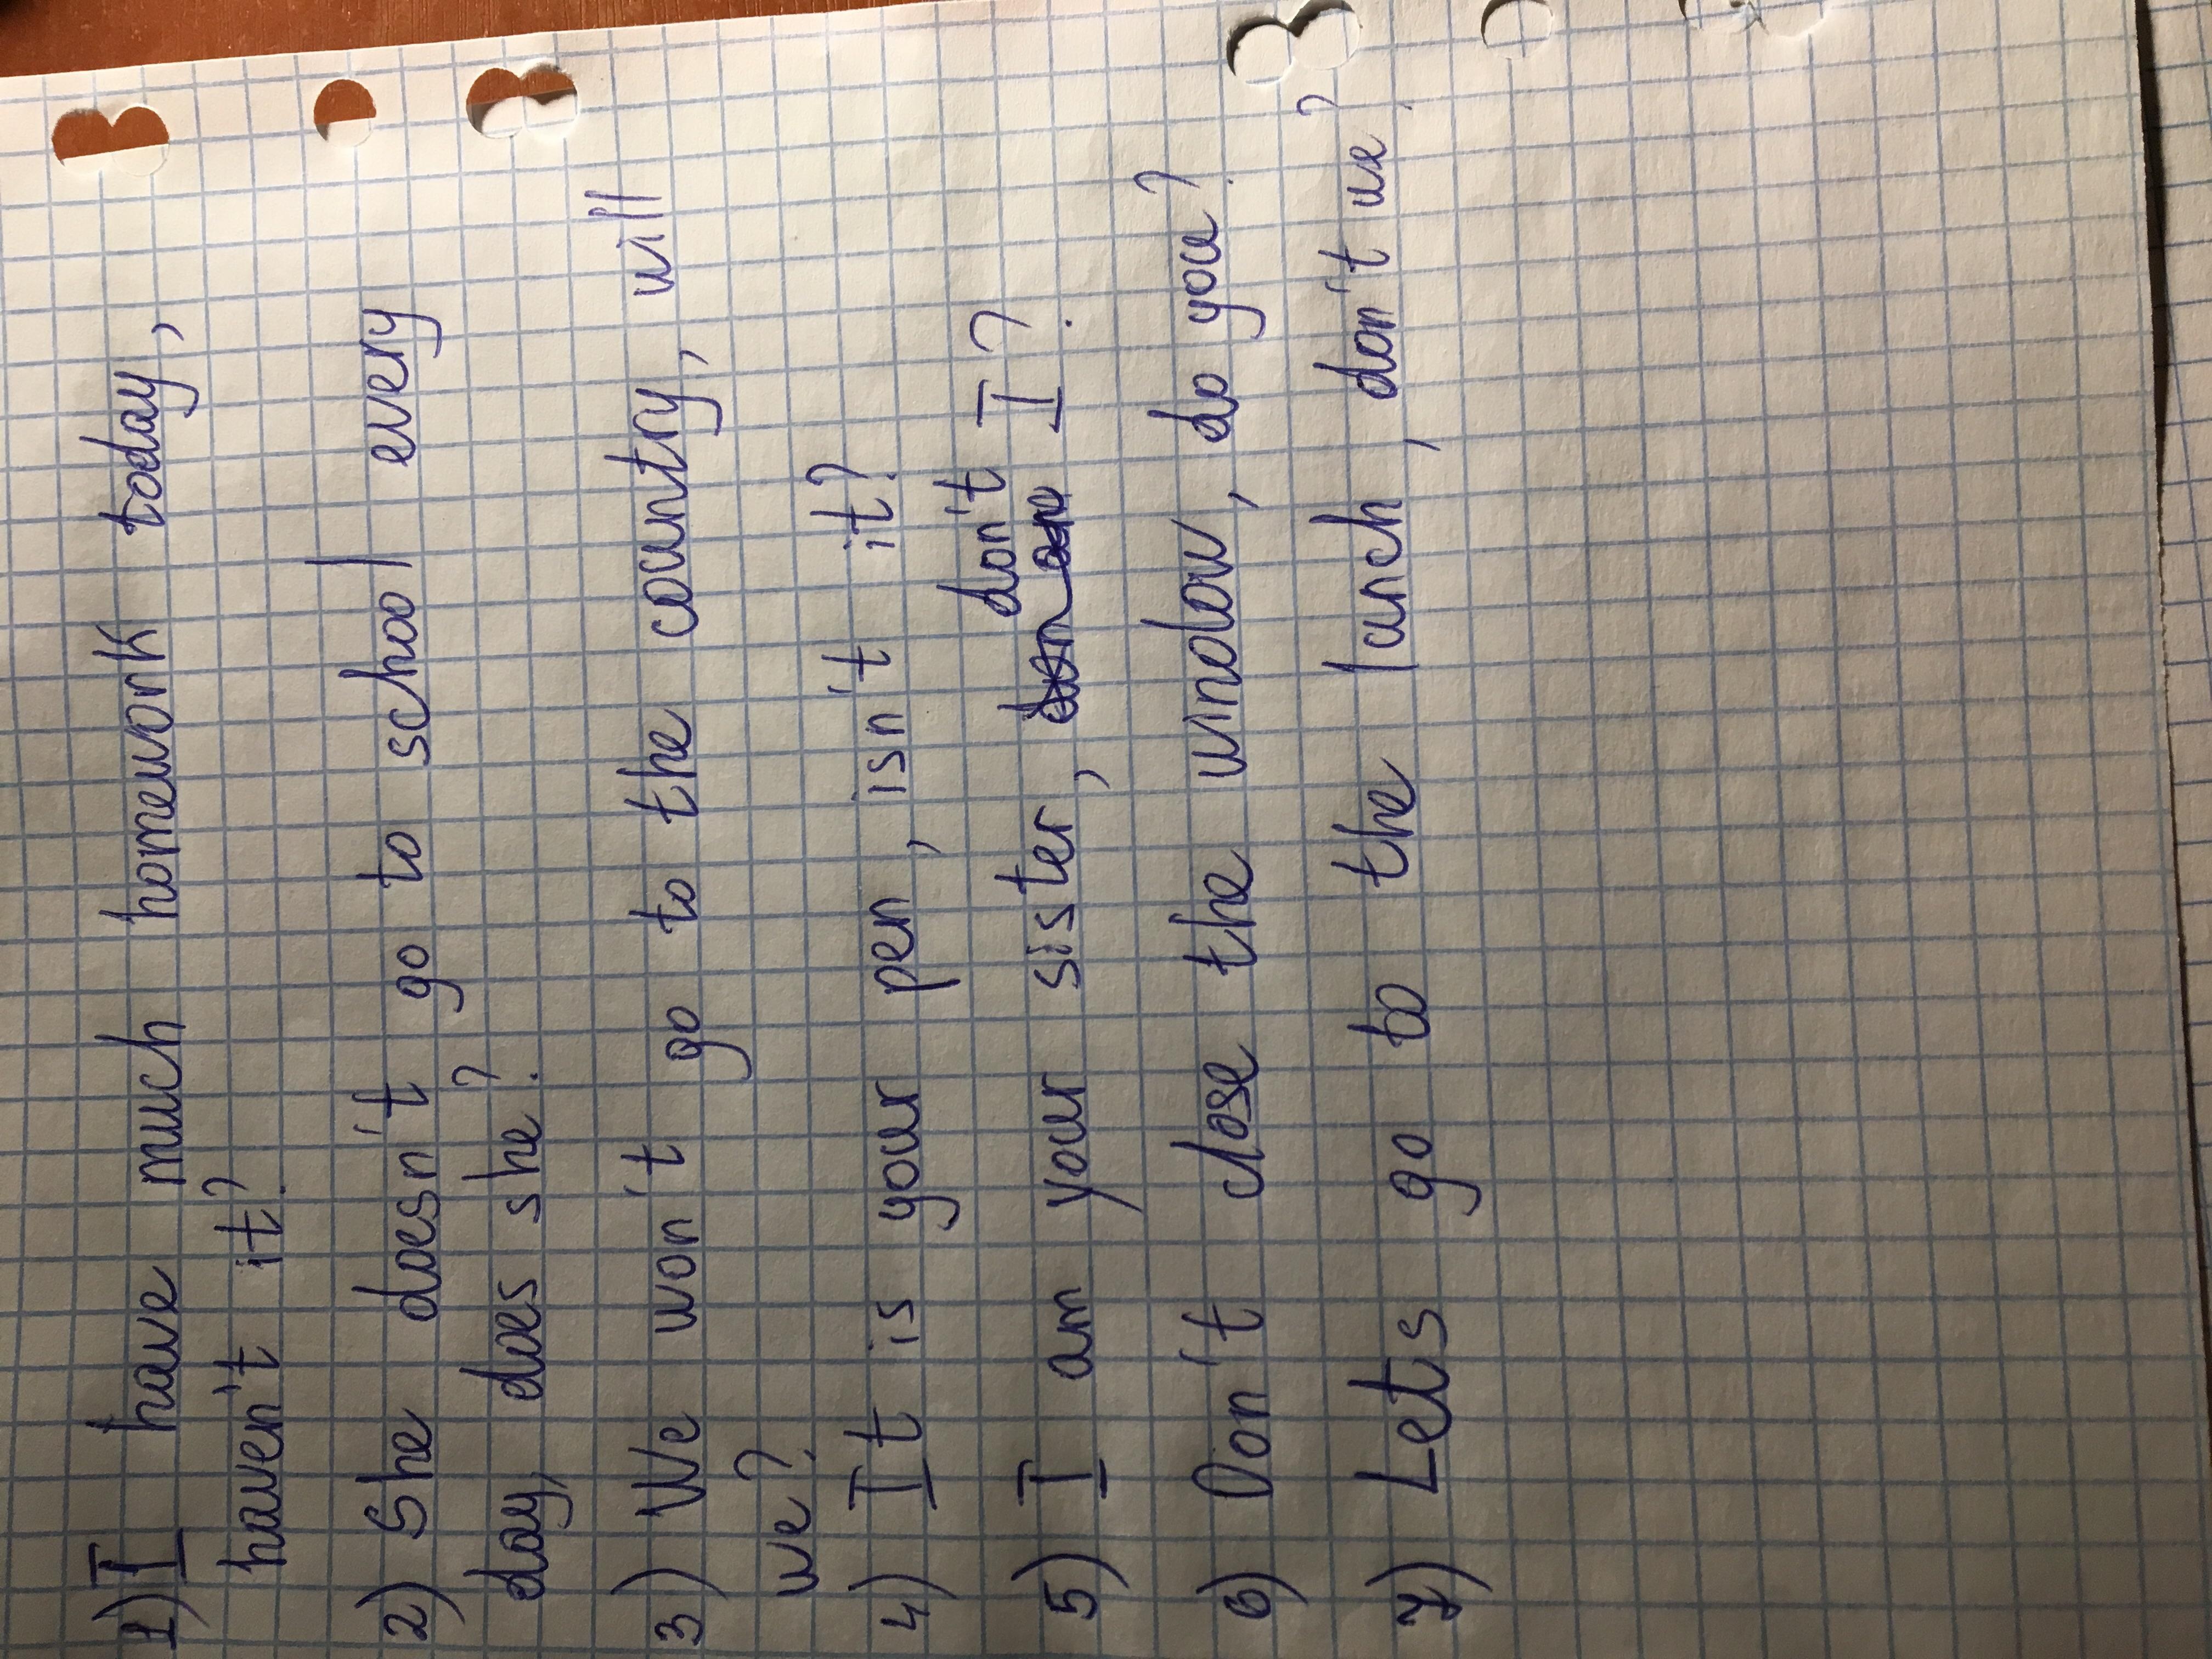 1) I have much homework today,
haven't it?
2) She doesn't go to school every
day, does she?
3) We won't go to the country, will
we?
4) It is your pen, isn't it?
don't
5) I am your sister, I?
6) Don't close the window, do you?
7) Lets go to the lunch, don't we?